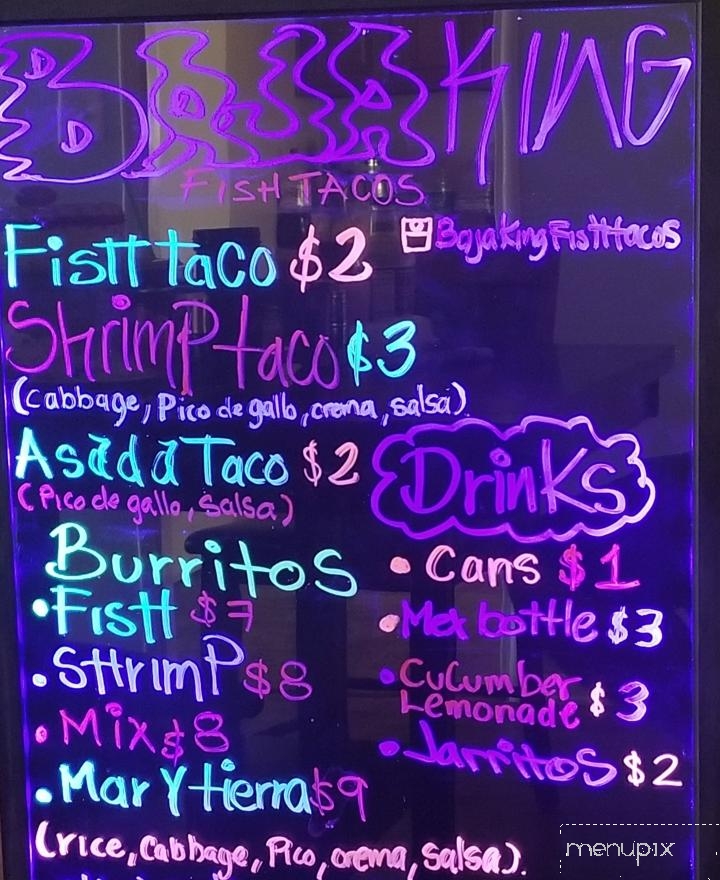 BAJA KING
FISH TACOS
BajakingFisHtacos
FisH taco $2
Shrimp taco $3
(cabbage, Pico de gallo, crema, salsa)
Asada Taco $2
(Pico de gallo, salsa)
Burritos
• FisH $7
• SHrimp $8
• Mix $8
• Mar Y tierra $9
(rice, Cabbage, Pico, crema, salsa).
Drinks
• Cans $1
• Mex bottle $3
• Cucumber
Lemonade $3
• Jarritos $2
menupix